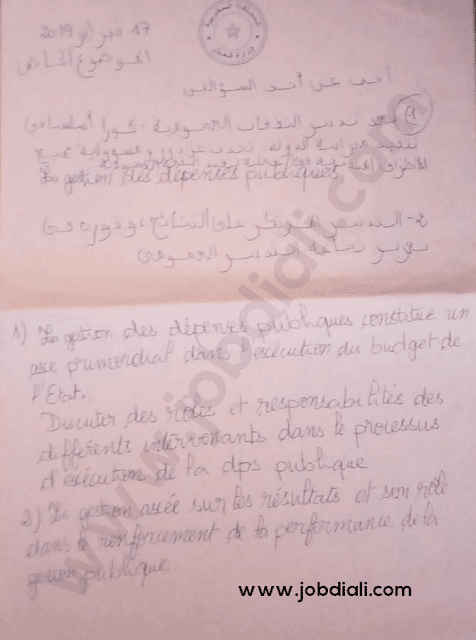 17 فبراير 2019
الموضوع الخاص
أجب عن أحد السؤالين
1) يعد تدبير النفقات العمومية، محورا أساسيا في
تنفيذ ميزانية الدولة، تحدث عن دور ومسؤولية جميع
La gestion des dépenses publiques
2- التدبير المرتكز على النتائج، ودوره في
تعزيز نجاعة التدبير العمومي
1) La gestion des dépenses publiques constitue un
axe primordial dans l'exécution du budget de
l'Etat.
Discuter des rôles et responsabilités des
différents intervenants dans le processus
d'exécution de la dps publique
2) La gestion axée sur les résultats et son rôle
dans le renforcement de la performance de la
gestion publique
www.jobdiali.com
www.jobdiali.com